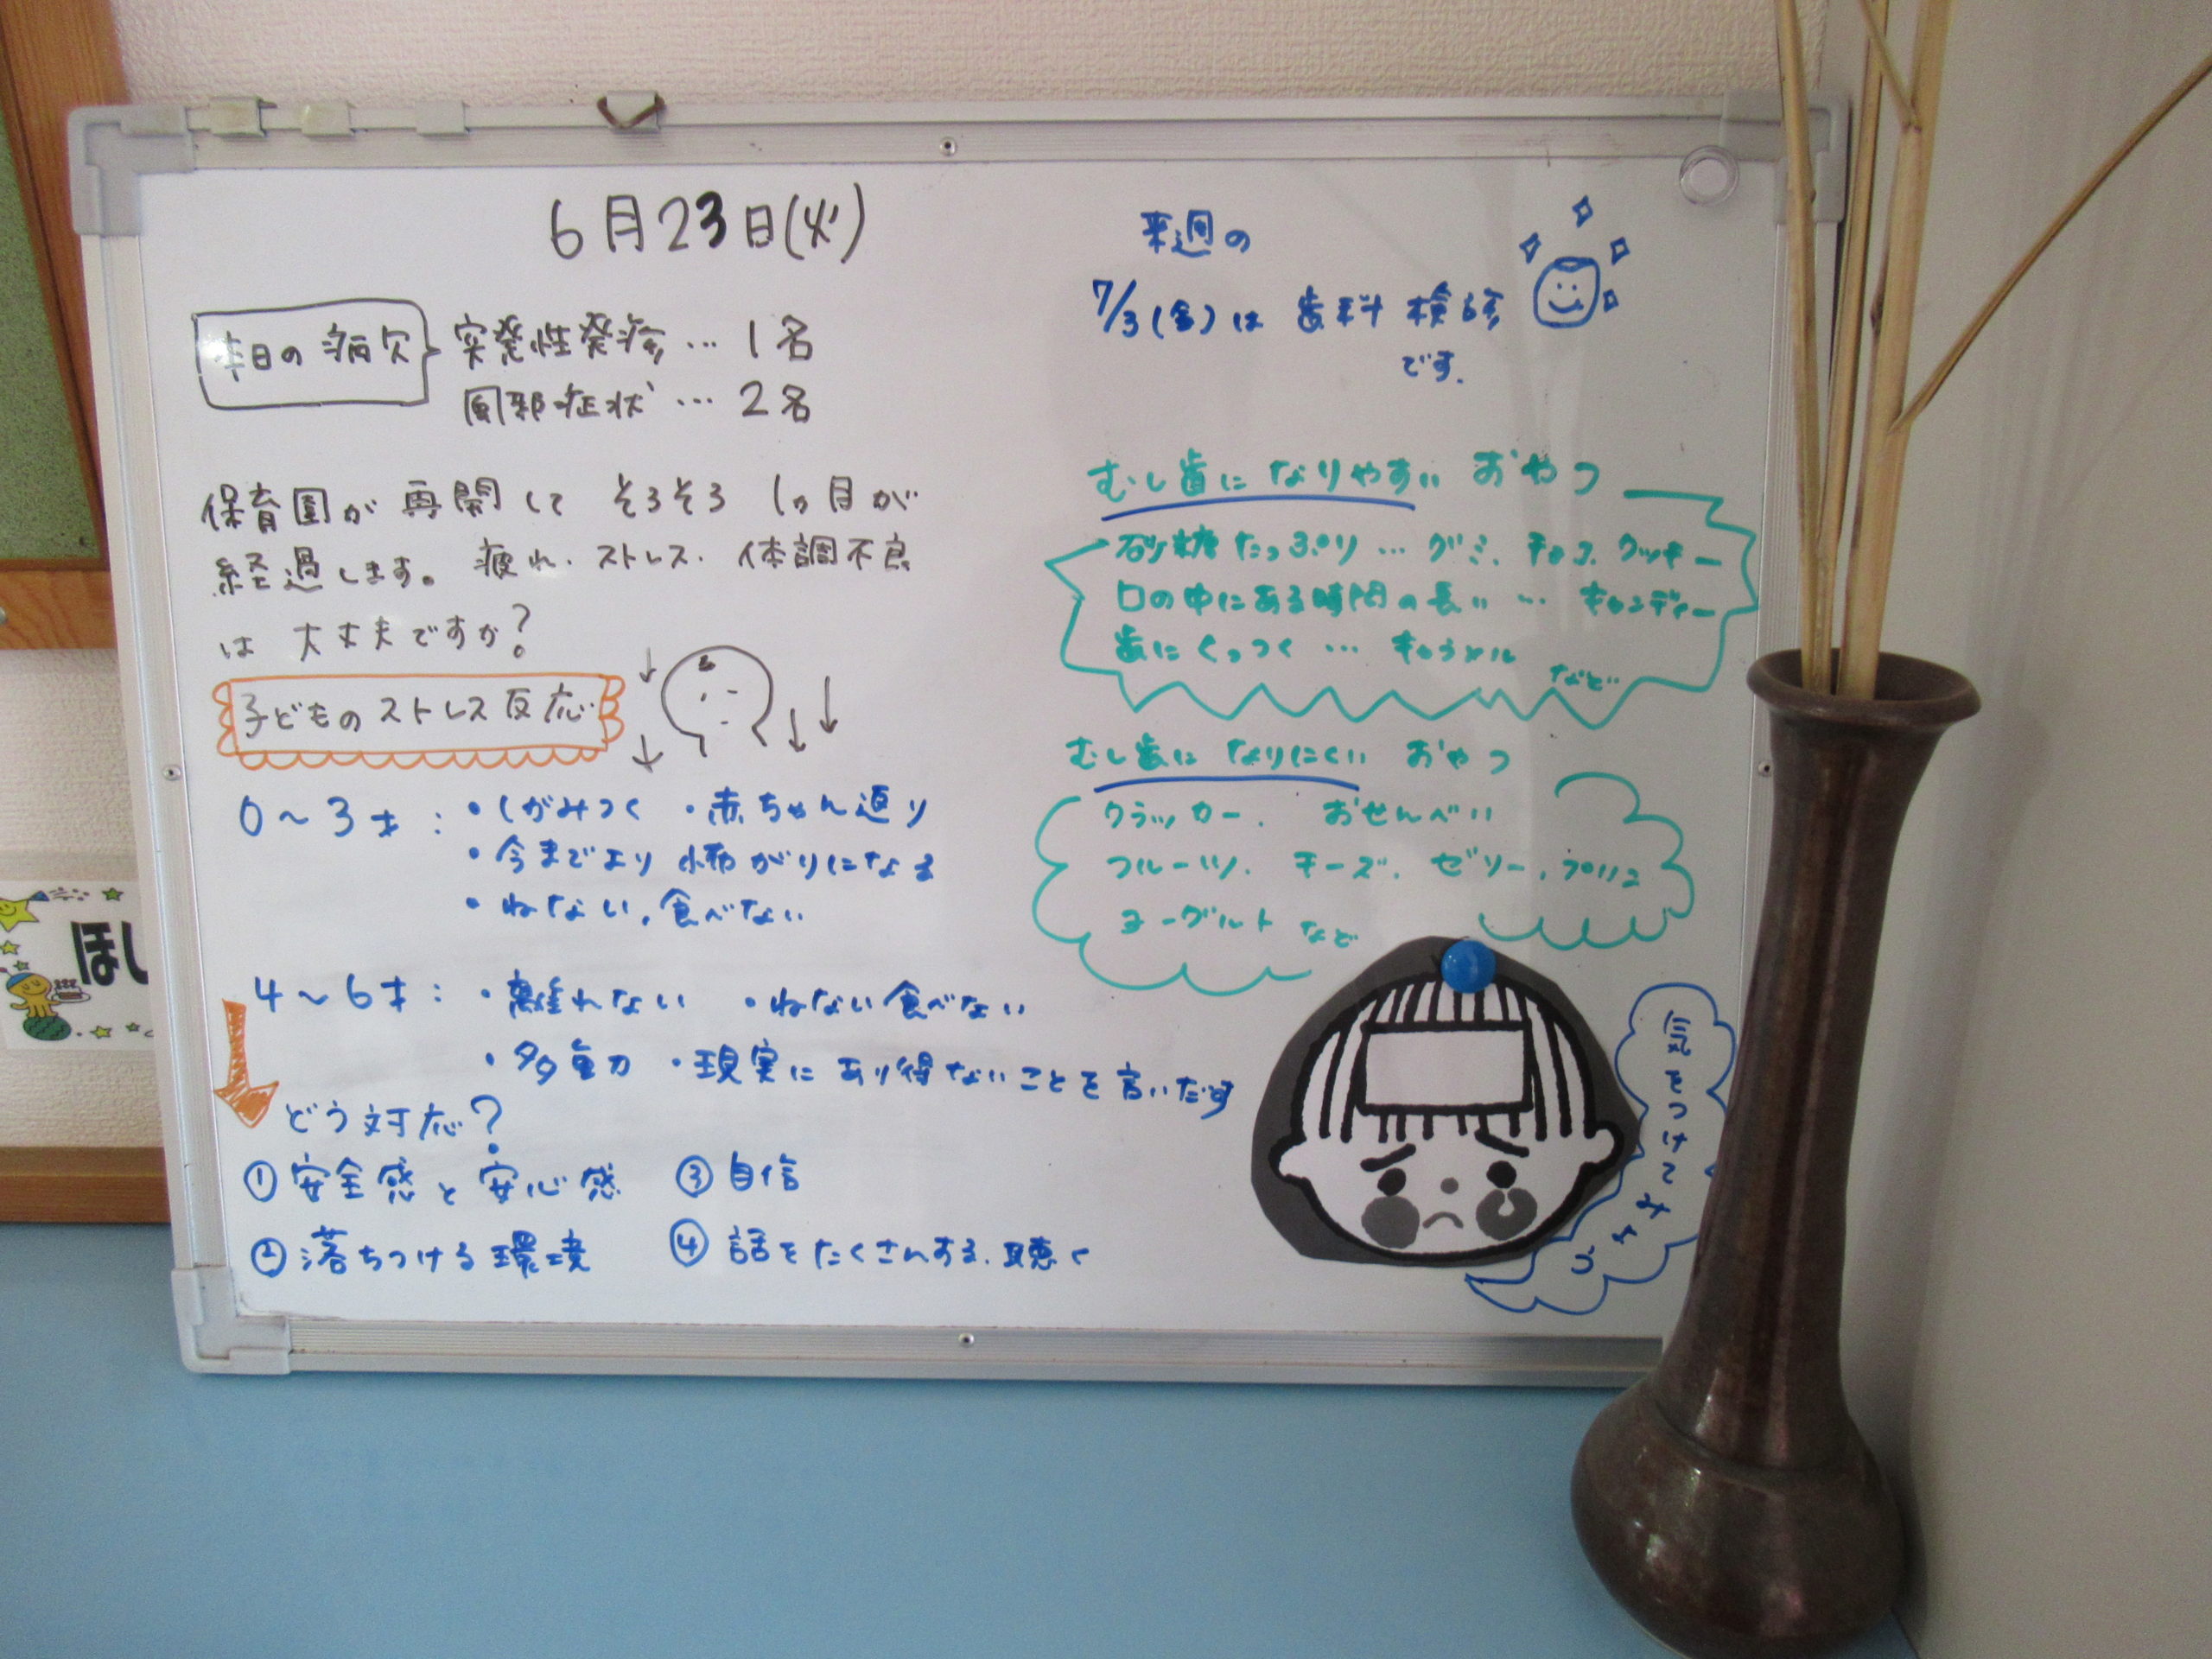 6月23日(火)
本日の病欠
突発性発疹…1名
風邪症状…2名
保育園が再開してそろそろ1ヵ月が
経過します。疲れ.ストレス.体調不良
は大丈夫ですか?
子どものストレス反応
0~3才:・しがみつく ・赤ちゃん返り
・今までより怖がりになる
・ねない.食べない
4~6才:・離れない ・ねない食べない
・多動 ・現実にあり得ないことを言いだす
どう対応?
①安全感と安心感
②落ちつける環境
③自信
④話をたくさんする.聴く
来週の
7/3(金)は歯科検診
です.
むし歯になりやすいおやつ
砂糖たっぷり…グミ.チョコ.クッキー
口の中にある時間の長い…キャンディー
歯にくっつく…キャラメル
など
むし歯になりにくいおやつ
クラッカー. おせんべい
フルーツ.チーズ.ゼリー.プリン
ヨーグルト など
気をつけてみよう
ほし